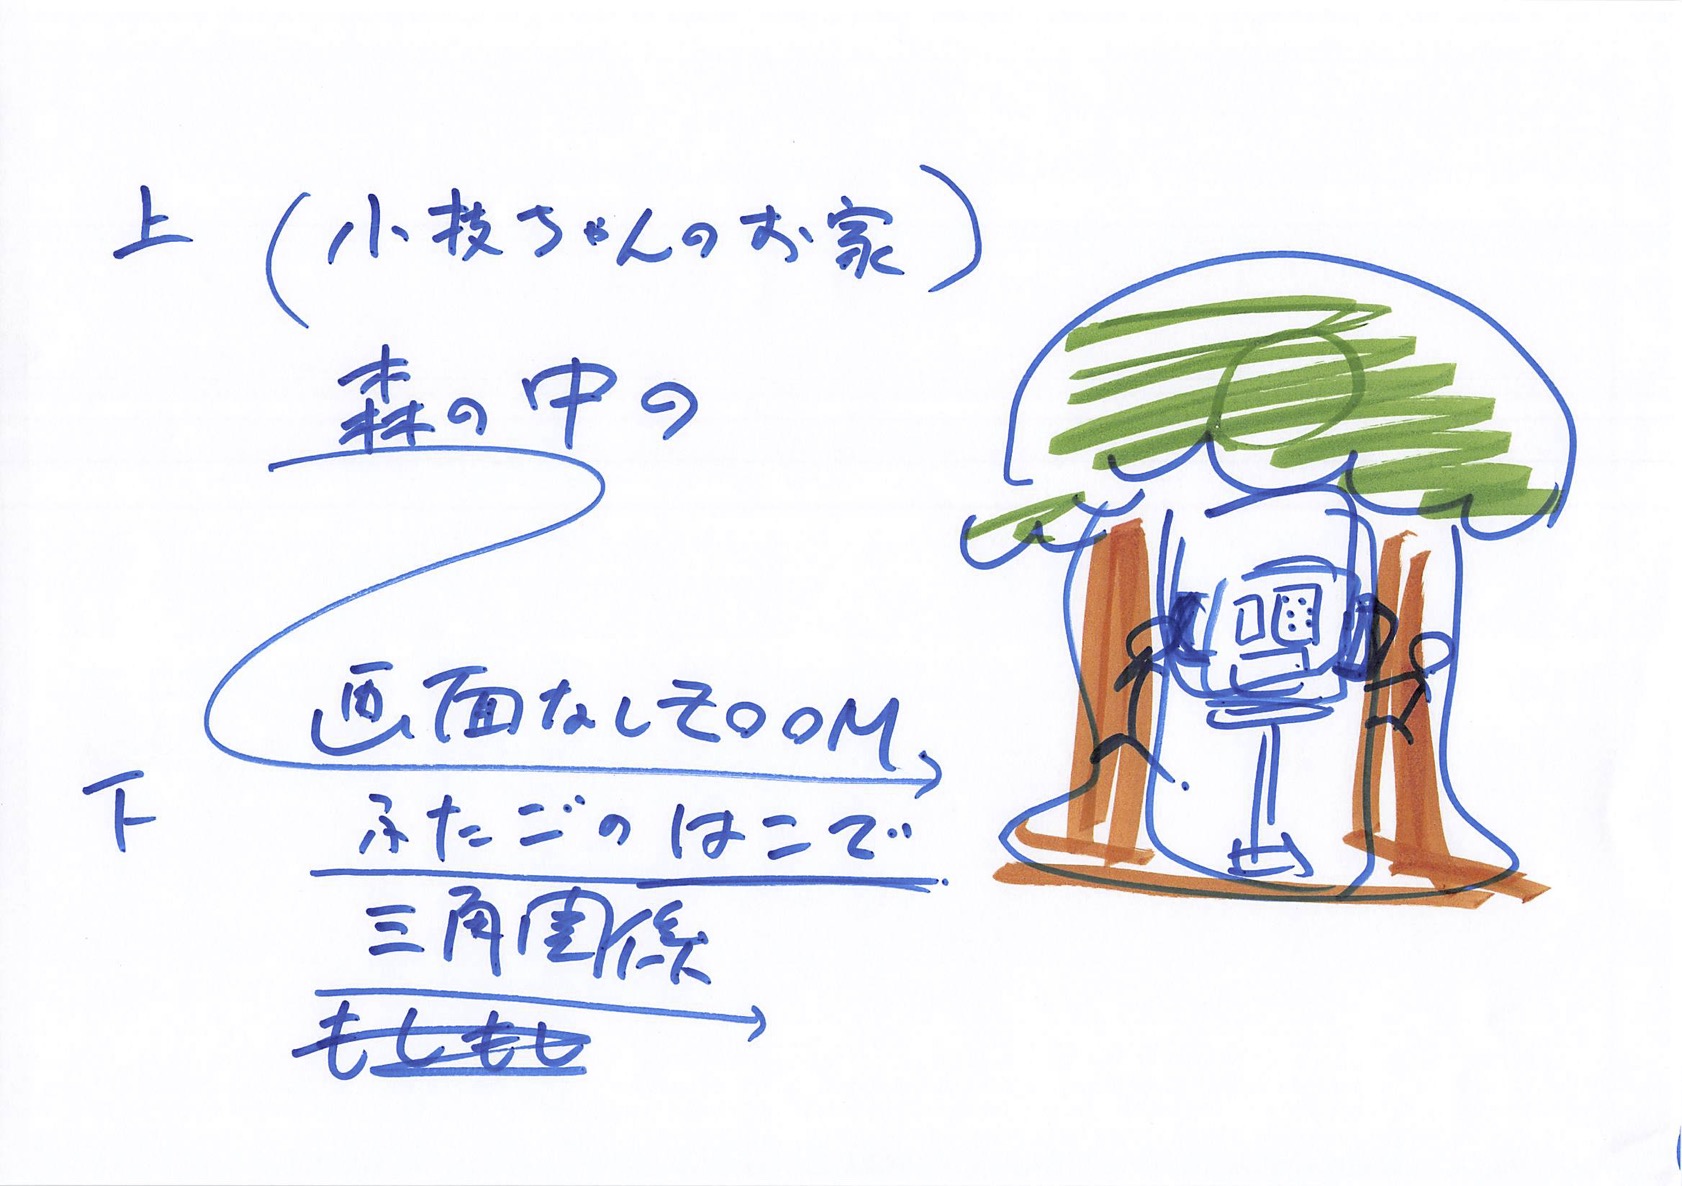 上 (小技ちゃんのお家)
森の中の
画面なしZOOM
下 ふたごのはこで
三角関係
もしもし